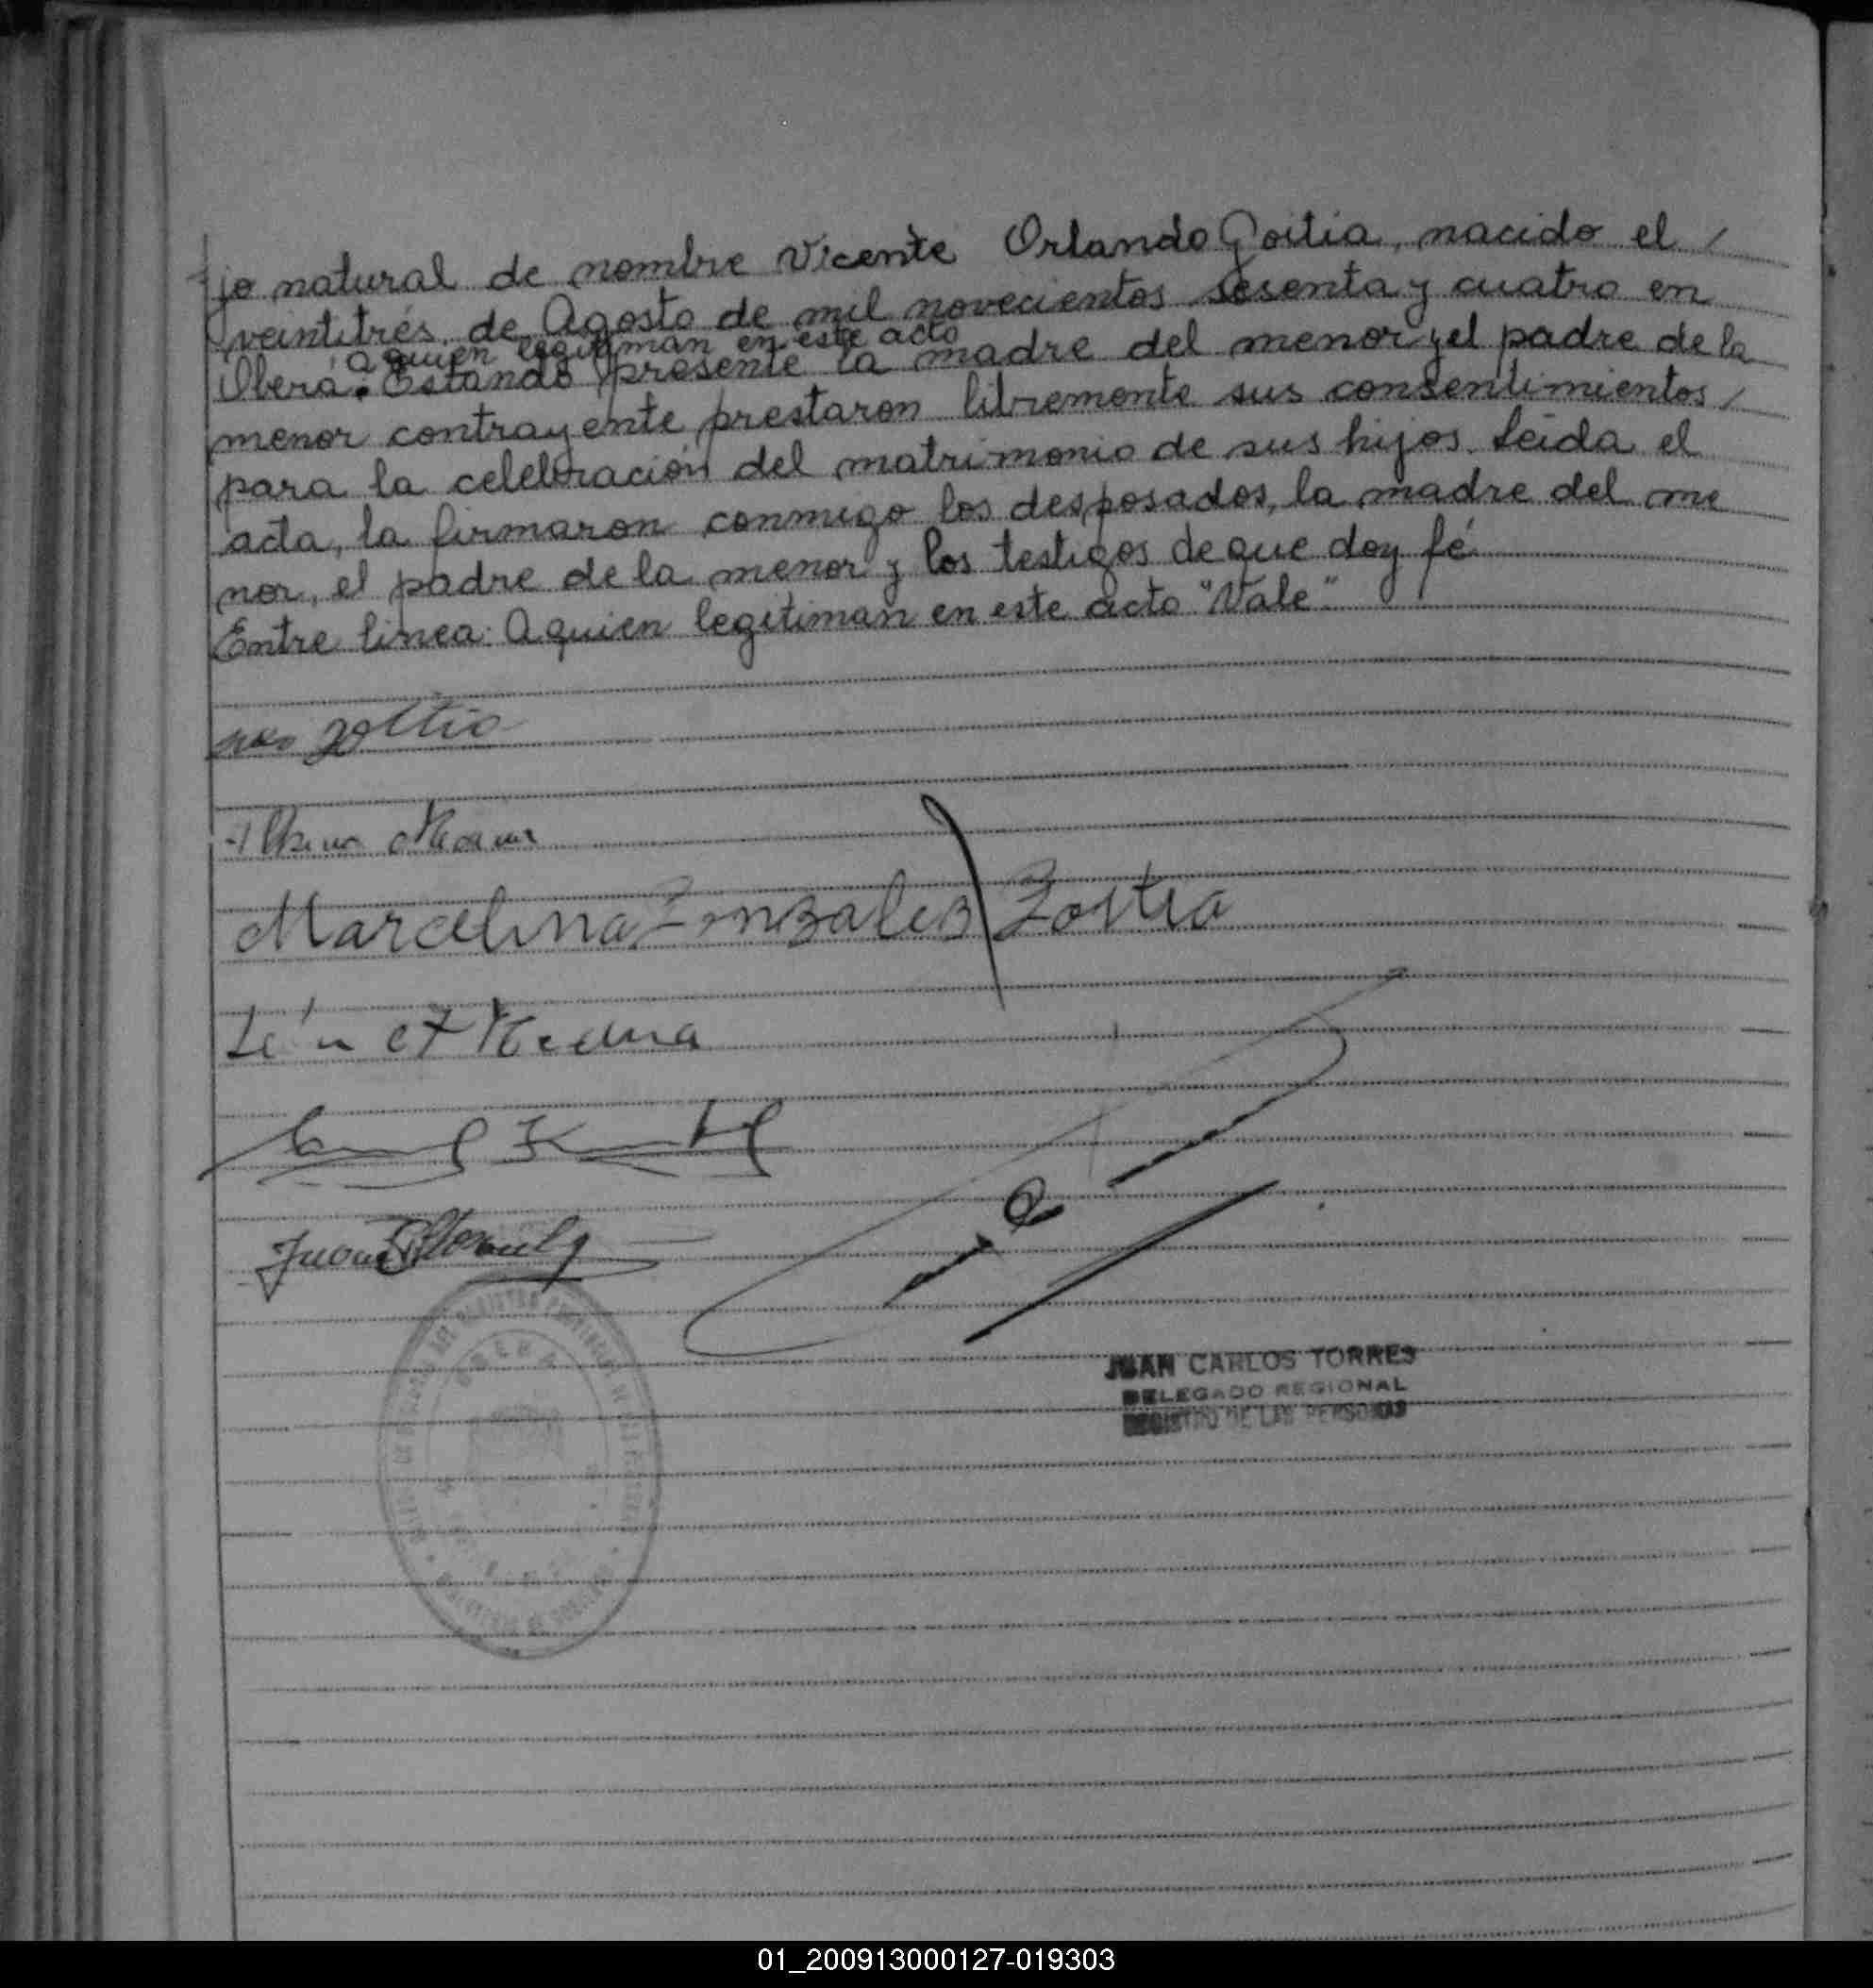 jo natural de nombre Vicente Orlando Goitia, nacido el /
veintitrés de Agosto de mil novecientos sesenta y cuatro en
a quien legitiman en este acto
Oberá. Estando presente la madre del menor y el padre de la
menor contrayente prestaron libremente sus consentimientos /
para la celebración del matrimonio de sus hijos. Leída el
acta, la firmaron conmigo los desposados, la madre del me
nor, el padre de la menor y los testigos de que doy fé
Entre linea: A quien legitiman en este acto "Vale"
goitia
Marcelina Gonzalez Goitia
Juan
JUAN CARLOS TORRES
DELEGADO REGIONAL
REGISTRO DE LAS PERSONAS
01_200913000127-019303